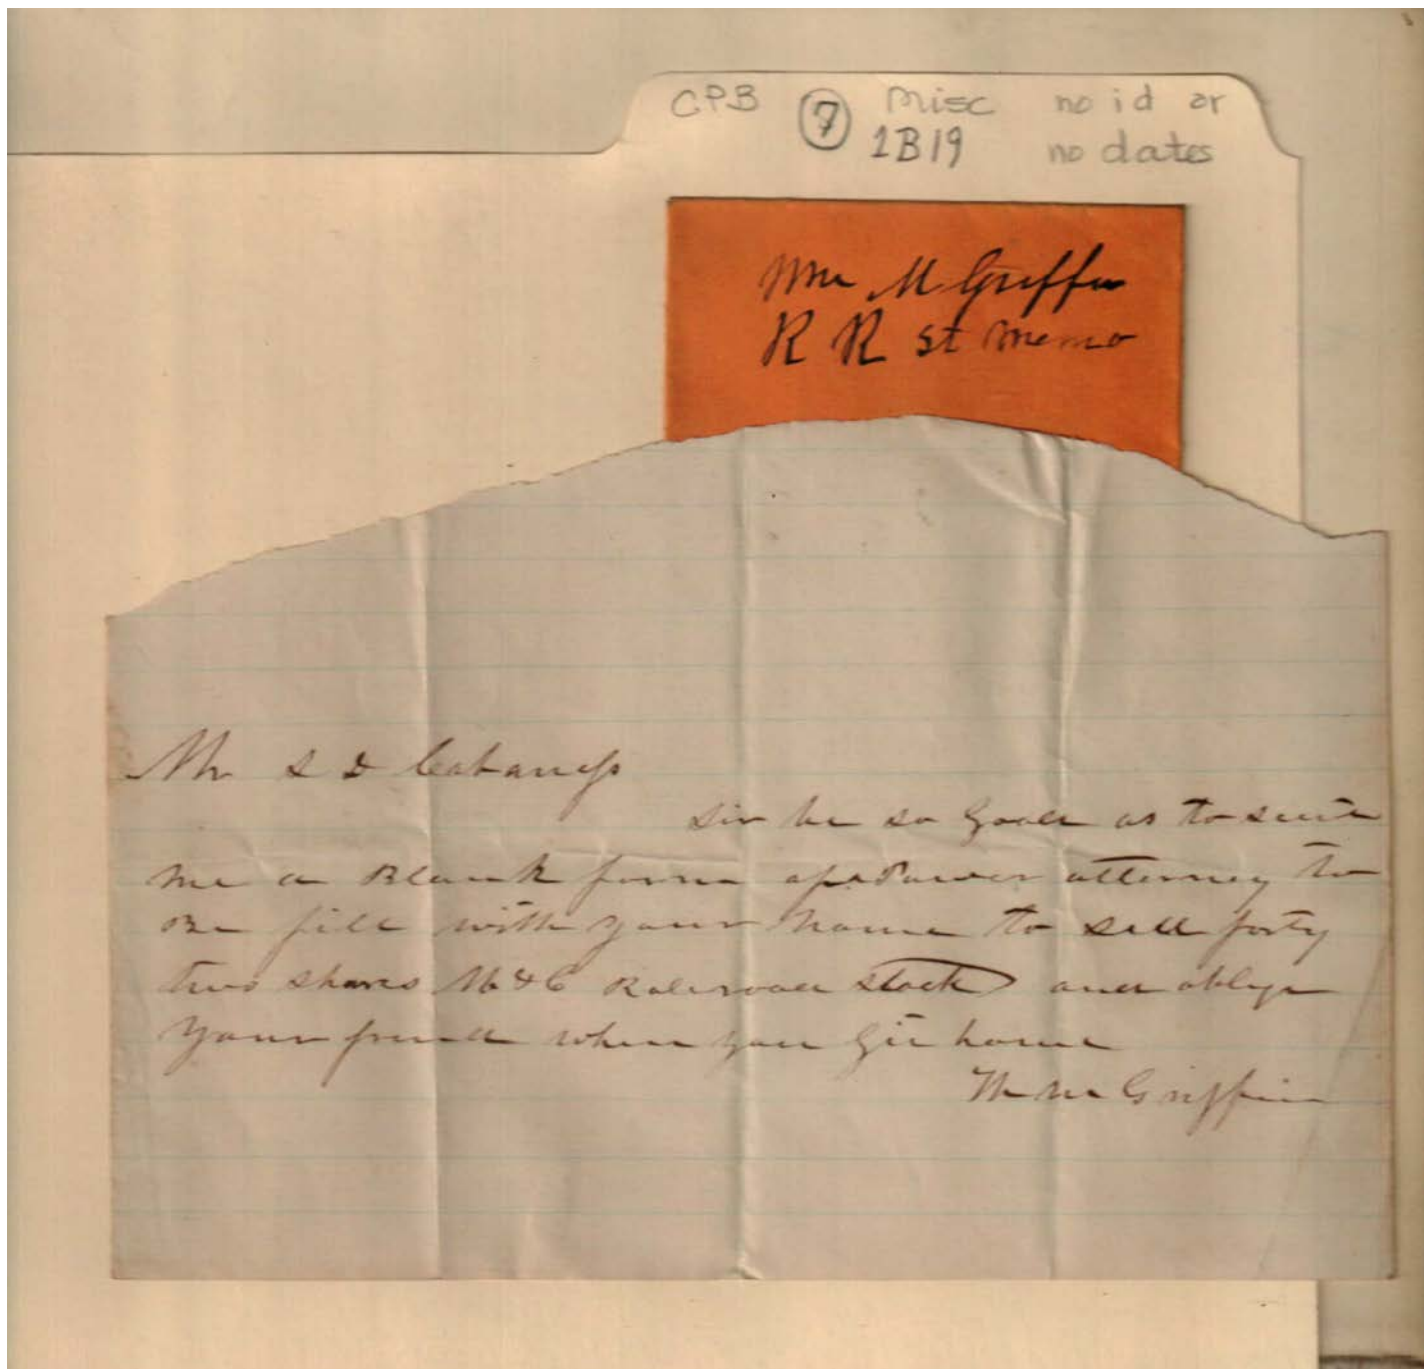 CPB 7 Misc no id or
1B19 no dates
Wm M Griffin
R R St Memo
Mr S D Cabaness
Sir be so Good as to send
me a Blank form of a Power atterney to
Be fill with your name to sell forty
two shares M & C Raleroad stock and oblige
Your friend when you git home
Wm M Griffin